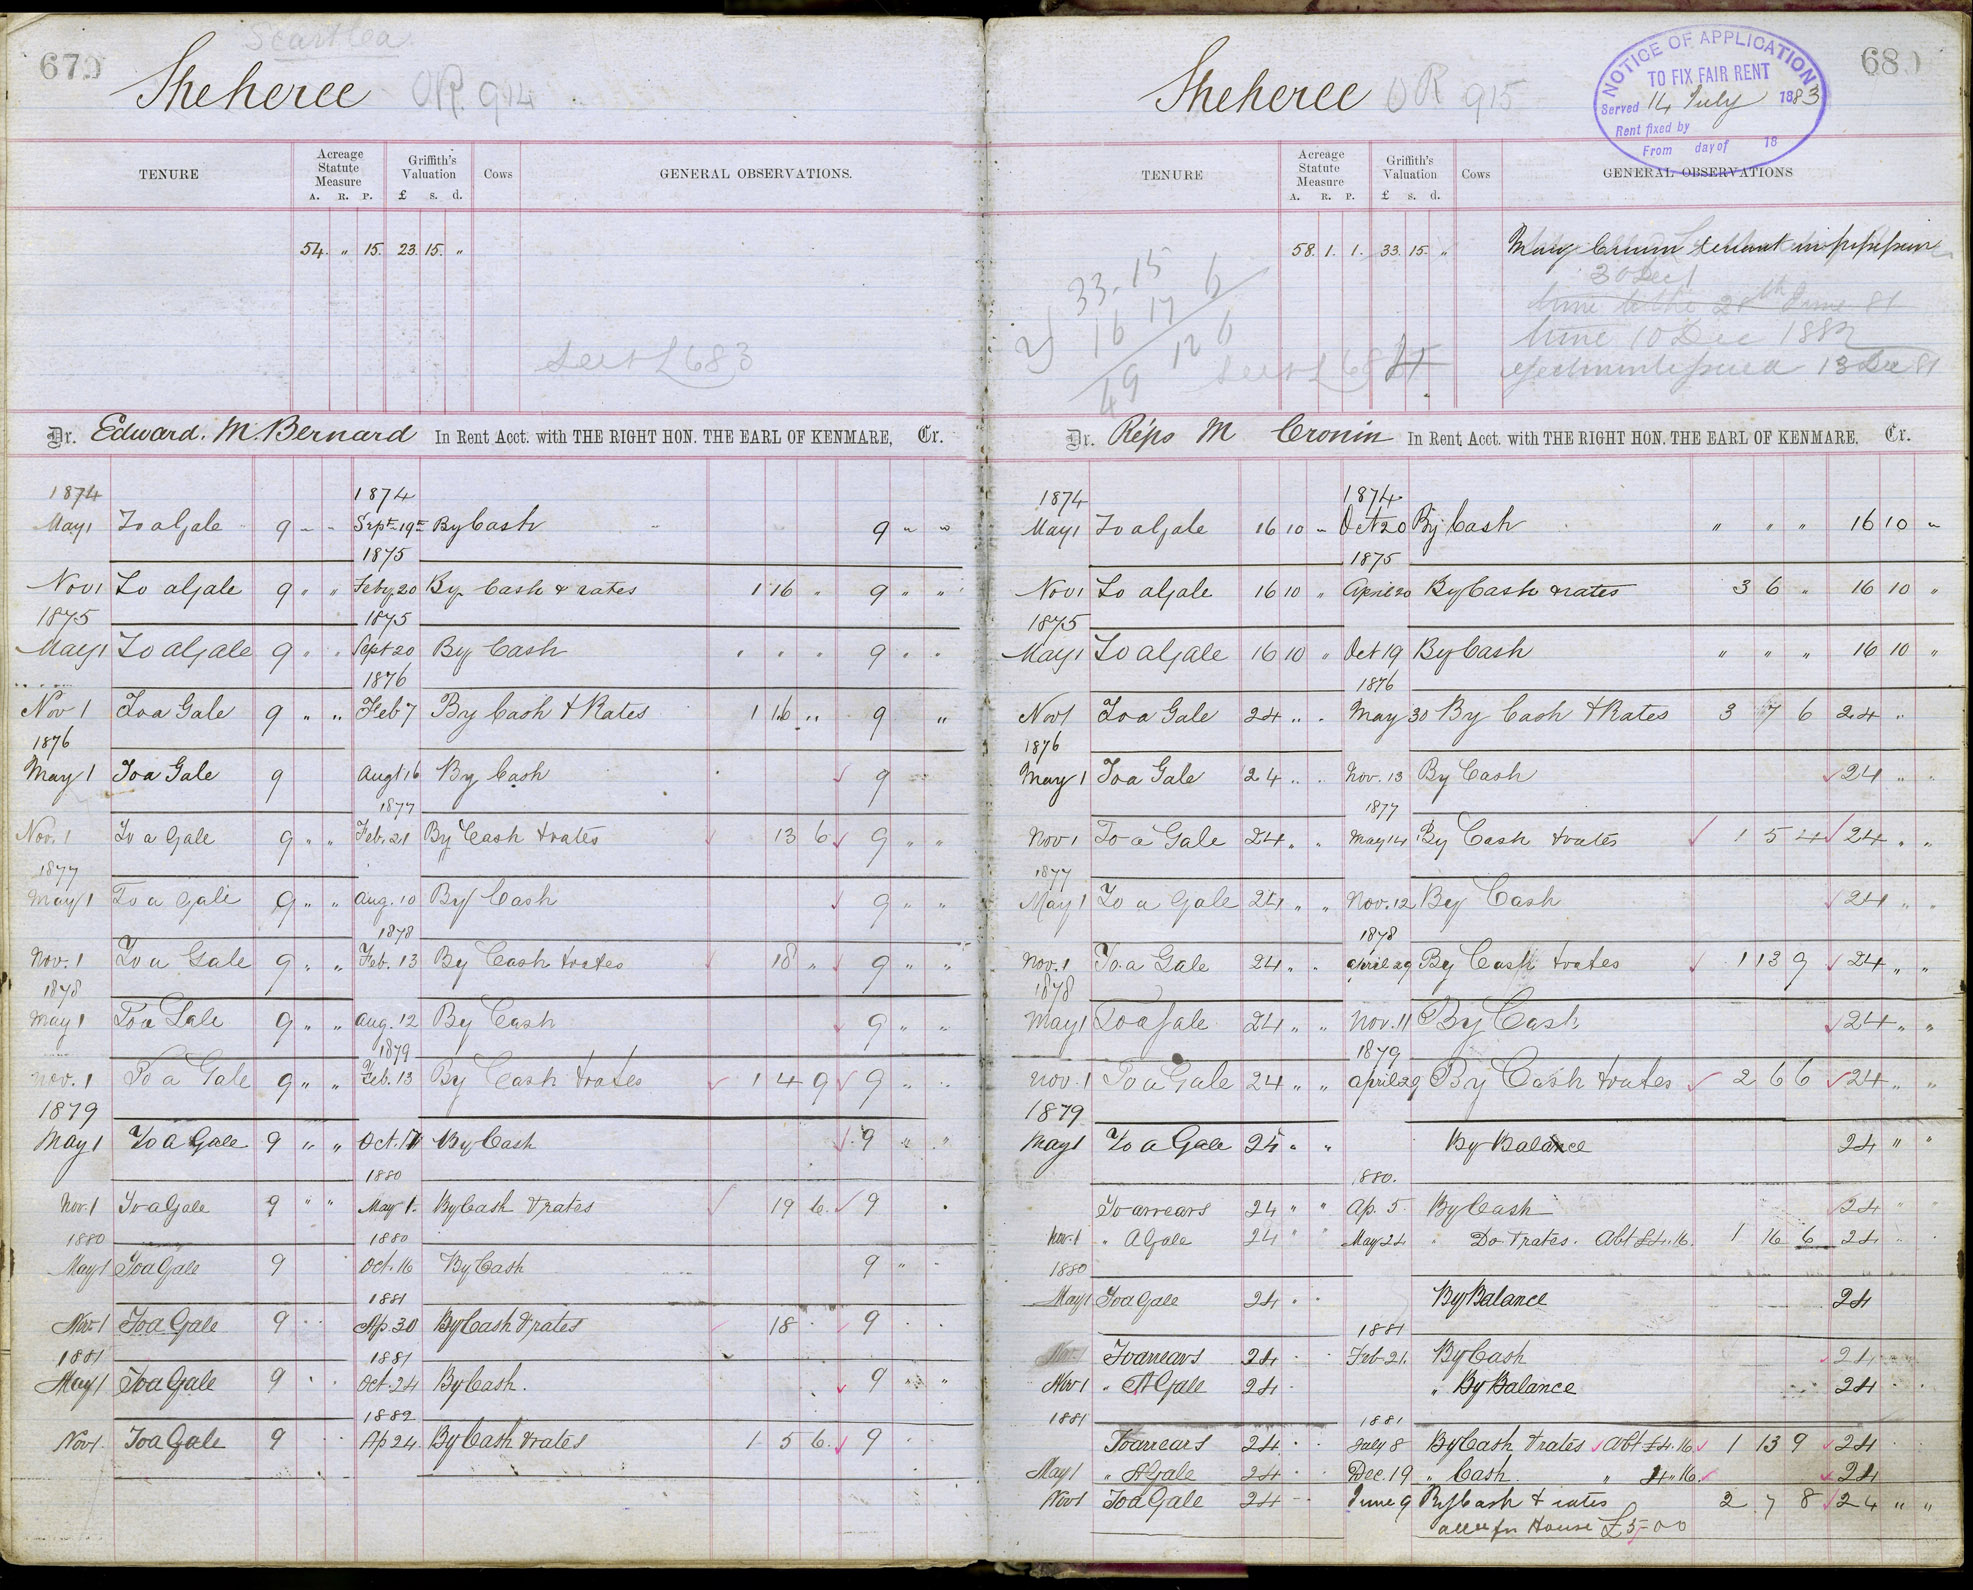 670
Scartlea
Sheheree OR. 914
TENURE
Acreage Statute Measure
A. R. P.
Griffith's Valuation
£ s. d.
Cows
GENERAL OBSERVATIONS.
54. " 15. 23 15. "
683
Dr. Edward. M. Bernard In Rent Acct. with THE RIGHT HON. THE EARL OF KENMARE, Cr.
1874 1874
May 1 To a Gale 9 - - Sept. 19th By Cash 9 " "
1875
Nov 1 To a Gale 9 " " Feby 20 By Cash & rates 1 16 " 9 " "
1875 1875
May 1 To a Gale 9 " " Sept 20 By Cash " " " 9 " "
1876
Nov 1 To a Gale 9 " " Feb 7 By Cash & Rates 1 16 " 9 "
1876
May 1 To a Gale 9 Augt 16 By Cash 9
1877
Nov. 1 To a Gale 9 " " Feb. 21 By Cash & rates 13 6 9 " "
1877
May 1 To a Gale 9 " " Aug. 10 By Cash 9 " "
1878
Nov. 1 To a Gale 9 " " Feb. 13 By Cash & rates 18 " 9 " "
1878
May 1 To a Gale 9 " " Aug. 12 By Cash 9 " "
1879
Nov. 1 To a Gale 9 " " Feb. 13 By Cash & rates 1 4 9 9 " "
1879
May 1 To a Gale 9 " " Oct. 17 By Cash 9 " "
1880
Nov. 1 To a Gale 9 " " May 1. By Cash & rates 19 6 9
1880 1880
May 1 To a Gale 9 Oct. 16 By Cash 9 "
1881
Nov. 1 To a Gale 9 Ap. 30 By Cash & rates 18 9
1881 1881
May 1 To a Gale 9 Oct. 24 By Cash. 9 " "
1882
Nov 1. To a Gale 9 Ap 24. By Cash & rates 1 5 6 9
680
Sheheree OR 915
NOTICE OF APPLICATION
TO FIX FAIR RENT
Served 14 July 1883
Rent fixed by
From day of 18
TENURE
Acreage Statute Measure
A. R. P.
Griffith's Valuation
£ s. d.
Cows
GENERAL OBSERVATIONS
58. 1. 1. 33. 15. "
tenant in
30 Dec
20th June 81
time 10 Dec 1882
13 Dec 81
33-15
16 17 6
49 12 6
Dr. Reps M Cronin In Rent Acct. with THE RIGHT HON. THE EARL OF KENMARE, Cr.
1874 1874
May 1 To a Gale 16 10 " Oct 20 By Cash " " " 16 10 "
1875
Nov 1 To a Gale 16 10 " April 20 By Cash & rates 3 6 " 16 10 "
1875
May 1 To a Gale 16 10 " Oct 19 By Cash " " " 16 10 "
1876
Nov 1 To a Gale 24 " " May 30 By Cash & Rates 3 7 6 24 "
1876
May 1 To a Gale 24 " " Nov. 13 By Cash 24 " "
1877
Nov 1 To a Gale 24 " " May 14 By Cash & rates 1 5 4 24 " "
1877
May 1 To a Gale 24 " " Nov. 12 By Cash 24 " "
1878
Nov. 1 To a Gale 24 " " April 29 By Cash & rates 1 13 9 24 " "
1878
May 1 To a Gale 24 " " Nov. 11 By Cash 24 " "
1879
Nov. 1 To a Gale 24 " " April 29 By Cash & rates 2 6 6 24 " "
1879
May 1 To a Gale 24 " " By Balance 24 " "
1880.
To arrears 24 " " Ap. 5. By Cash 24 " "
Nov. 1 " A Gale 24 " " May 24 " Do & rates. Abt £4.16. 1 16 6 24 " "
1880
May 1 To a Gale 24 By Balance 24
1881
To arrears 24 Feb. 21. By Cash 24
Nov 1 " A Gale 24 " By Balance 24
1881 1881
To arrears 24 July 8 By Cash & rates Abt £4.16 1 13 9 24
May 1 " A Gale 24 Dec. 19 " Cash. " 4 " 16. 24
Nov 1 To a Gale 24 June 9 By Cash & rates 2 7 8 24 " "
House £5-00